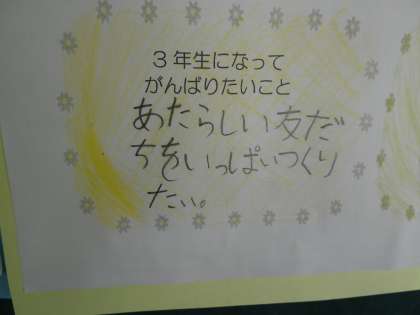 3年生になって
がんばりたいこと
あたらしい友だ
ちをいっぱいつくり
たい。